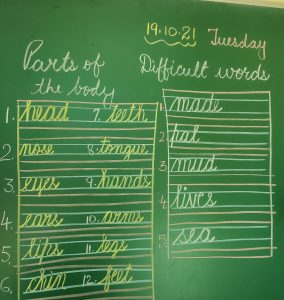 19.10.21 Tuesday
Parts of
the body
1. head 7. teeth
2. nose 8. tongue
3. eyes 9. hands
4. ears 10. arms
5. lips 11. legs
6. chin 12. feet
Difficult words
1. made
2. pat
3. mud
4. lives
5. sea